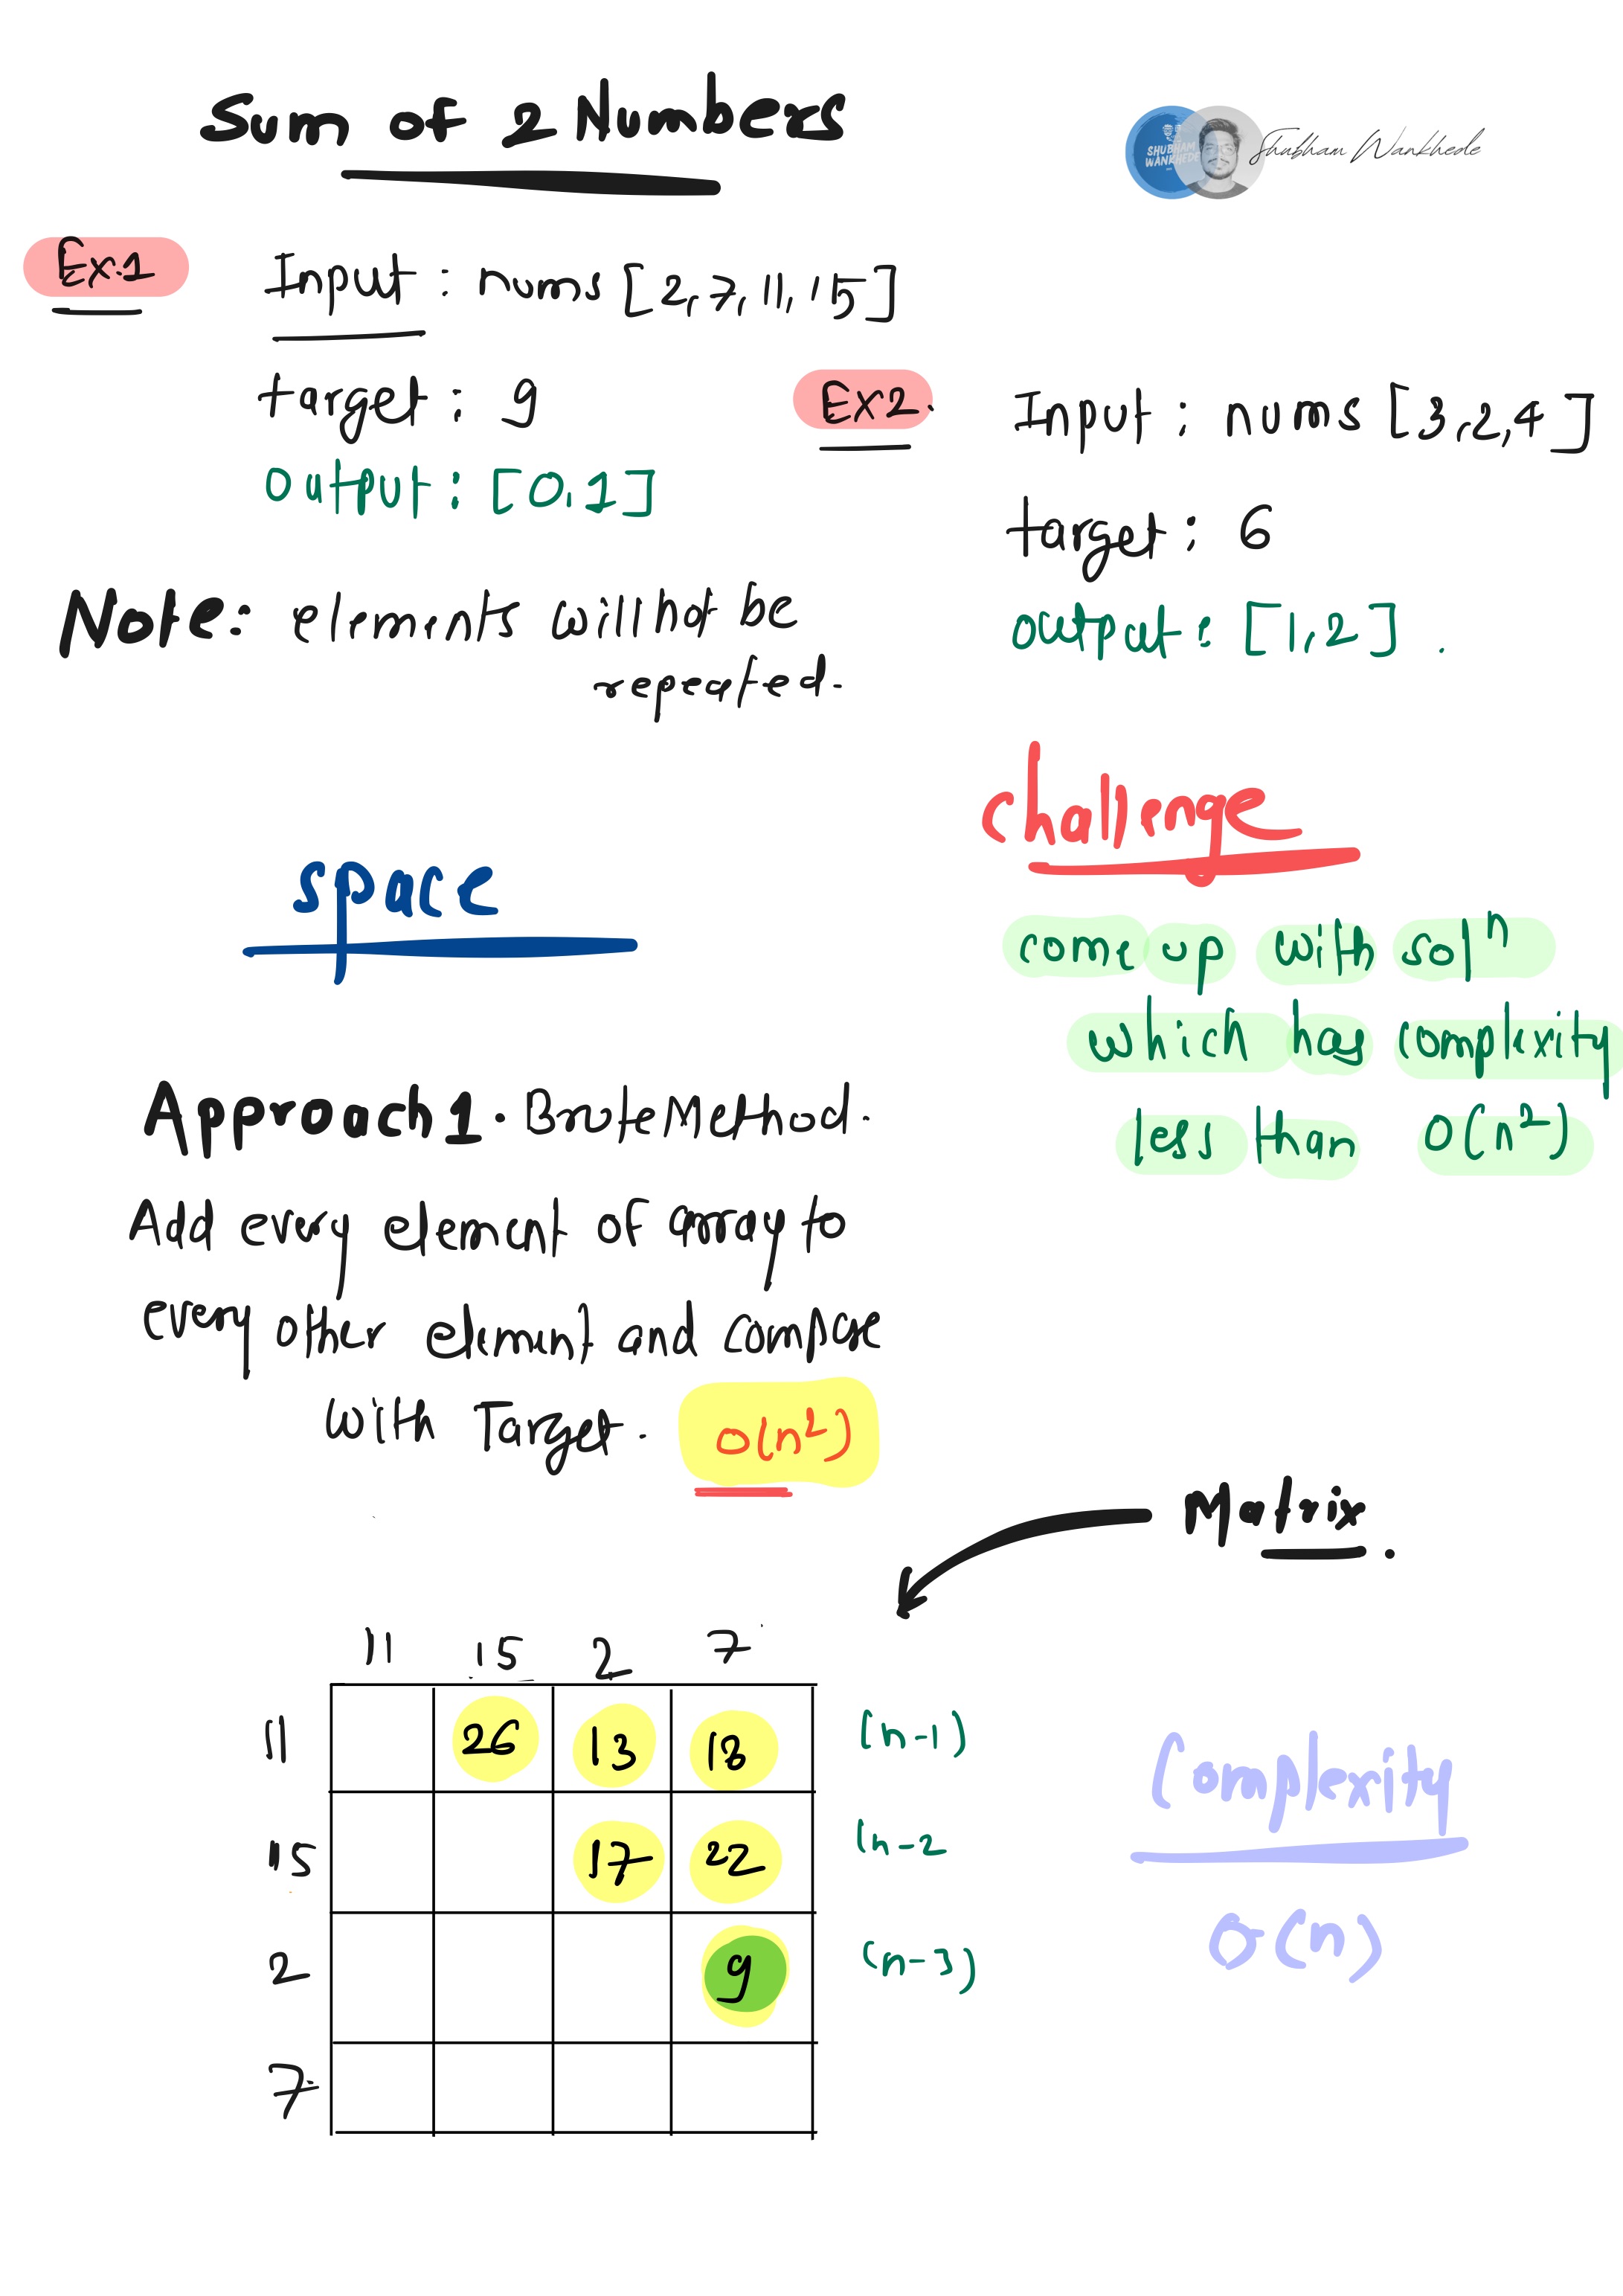 Sum of 2 Numbers
SHUBHAM
WANKHEDE
Shubham Wankhede
Ex.1
Input : nums [2,7,11,15]
target : 9
output : [0,1]
Ex2.
Input : nums [3,2,4]
target : 6
output : [1,2] .
Note: elements will not be
repeated.
challenge
come up with solⁿ
which has complexity
less than O(n²)
space
Approach 1. Brute Method.
Add every element of array to
every other element and compare
with Target. O(n²)
Matrix.
11 15 2 7
11 26 13 18 (n-1)
15 17 22 (n-2
2 9 (n-3)
7
Complexity
O(n)